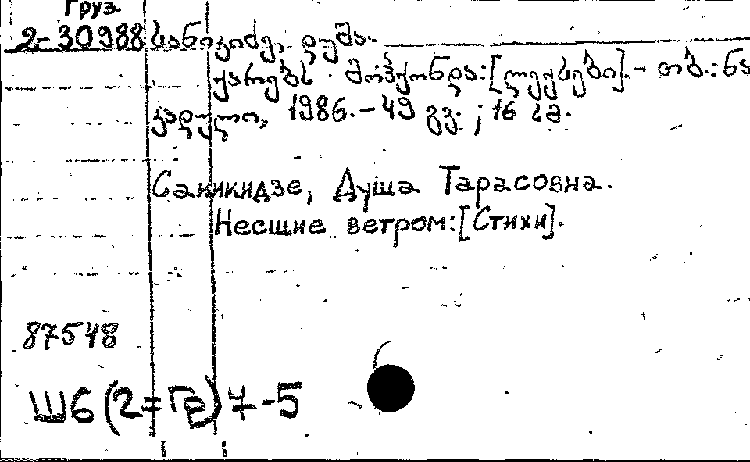 Груз.
2-30988 სანიკიძე, დუშა.
ქარებს მოჰქონდა:[ლექსები].- თბ.: ნა
კადული, 1986.-49 გვ.; 16 სმ.
Саникидзе, Душа Тарасовна.
Несшие ветром:[Стихи].
87548
Ш6(2=Гр)7-5